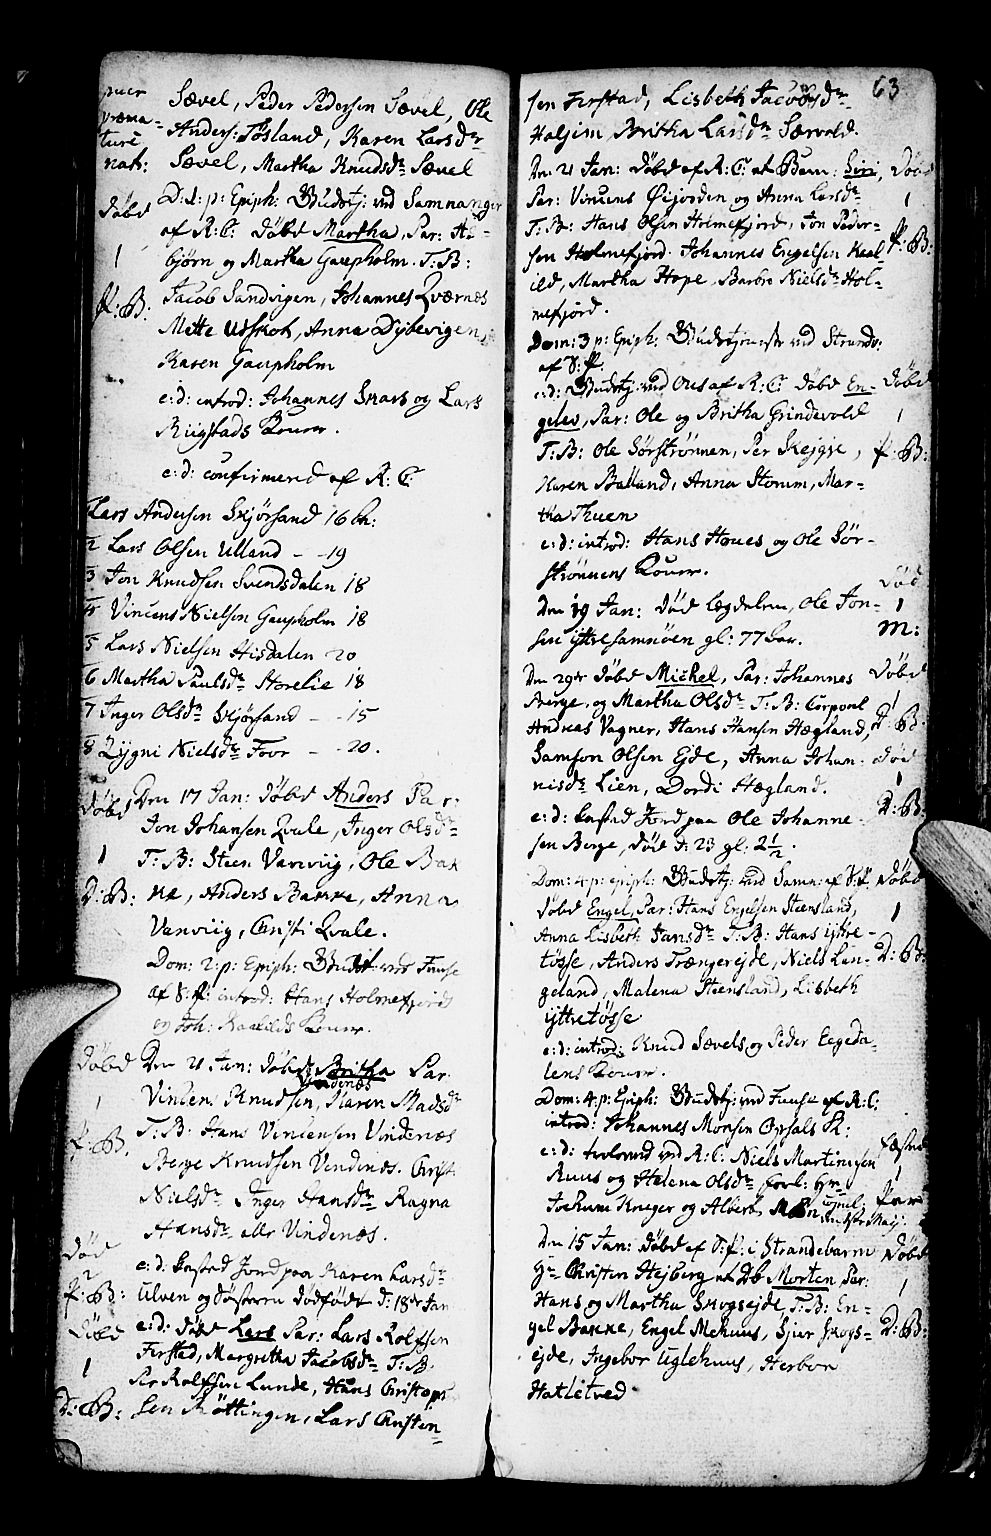 puer
præma-
turè
nat:
Sævel, Peder Pedersen Sævel, Ole
Anders: Tøsland, Karen Larsdr
Sævel, Martha Knudsdr Sævel
Døbd D: 1: p: Epiph: Gudstj: ved Samnanger
af R: C: Døbd Martha, Par: As-
1 bjørn og Martha Gaupholm. T: B:
P: B: Jacob Sandvigen, Johannes Qværnes
Mette Udskot, Anna Dybevigen
Karen Gaupholm
e: d: introd: Johannes Skars og Lars
Riigstads Koner.
e: d: confirmered af R: C:
Lars Andersen Skjørsand 16 Aar:
2 Lars Olsen Ulland - - 19
3 Jon Knudsen Svendsdalen 18
4 Vincens Nielsen Gaupholm 18
5 Lars Nielsen Hisdalen 20
6 Martha Paulsdr Storelie 18
7 Inger Olsdr Skjørsand - - 15
8 Lygni Nielsdr Foor - - 20.
Døbd Den 17 Jan: Døbd Anders Par:
Jon Johansen Qvale, Inger Olsdr
1 T: B: Steen Vanviig, Ole Bak
D: B: ke, Anders Bakke, Anna
Vanviig, Christi Qvale.
Dom: 2: p: Epiph: Gudst ved Fuuse
af S: P: introd: Hans Holmefjords
og Joh: Kaalilds Koner.
Døbd Den 21 Jan: Døbdt Britha Par.
Vindenæs
1 Vincens Knudsen, Karen Madsdr
P: B. T: B: Hans Vincensen Vindenæs
Børge Knudsen Vendenæs. Christ:
Nielsdr Inger Hansdr Ragna
Hansdr alle Vindenæs.
Død e: d: kastad Jord paa Karen Larsdr
2
P: B: Ulven og Døsteren dødfødt d: 18de Jan
Døbd e: d: Døbd Lars Par: Lars Rolfsen
1 Firstad, Margretha Jacobsdr T: B.
Per Rolfsen Lunde, Hans Christoph
D: B: sen Røttingen, Lars Christen
63
sen Firstad, Lisbeth Jacobsdr
Holsim, Britha Larsdr Særvold.
Den 21 Jan: Døbd af R: C: et Barn: Siri, Døbd
Par: Vincens Øijorden og Anna Larsdr 1
T: B: Hans Olsen Holmefjord, Jon Peder-
sen Holmefjord. Johannes Engelsen Kaal P: B:
ild, Martha Hope, Barbro Nielsdr Hol-
mefjord.
Dom: 3 p: Epiph: Gudstjeneste ved Strandv:
af S: P.
e: d: Gudstj: ved Ous af R: C: Døbd En- Døbd
gelev, Par: Ole og Britha Grindevold 1
T: B: Ole Sørstrønnen, Per Skejgje, P: B:
Karen Balland, Anna Storum, Mar-
tha Tuen
e: d: introd: Hans Houes og Ole Sør-
strønnens Koner.
Død
Den 19 Jan: Død lægdalem, Ole Jon- 1
sen yttresamnøen gl: 77 Aar. M:
Den 29de Døbd Michel, Par: Johannes Døbd
Berge, og Martha Olsdr T: B: Corporal 1
Andreas Vagner, Hans Hansen Hægland, D: B.
Samson Olsen Ejde, Anna Johan- Død
nisdr Lien, Dordi Hægland. 1
e: d: kastad Jord paa Ole Johanne- D: B:
sen Berge, død d: 23 gl: 2 1/2.
Dom: 4: p: epiph: Gudstj: ved Samn: af S: P. Døbd
Døbd Engel, Par: Hans Engelsen Steensland, 1
Anna Lisbeth Jansdr T: B: Hans yttre-
tøsse, Anders Trængerejde, Niels Lan- D: B:
geland, Malena Steensland, Lisbeth
yttretøsse
e: d: introd: Knud Sævels og Peder Eegeda-
lens Koner.
Dom: 4: p: Epiph: Gudstj: ved Fuuse af R: C:
introd: Johannes Monsen Opsals K:
e: d: trolovid ved R: C: Niels Martinussen Fæstned
Ruus og Helena Olsdr forl: Hr 1
Jochum Kruger og Albert Par
Den 15 Jan: Døbd af S: P: i Strandebarm Døbd
Hr Christen Hejberg et Db Morten Par: 1
Hans og Martha Skogsejde, T: B: En-
gel Bakke, Engel Mehuus, Sjur Skogs- D: B:
ejde, Ingebor Uglehuus, Herbor
Hatletved